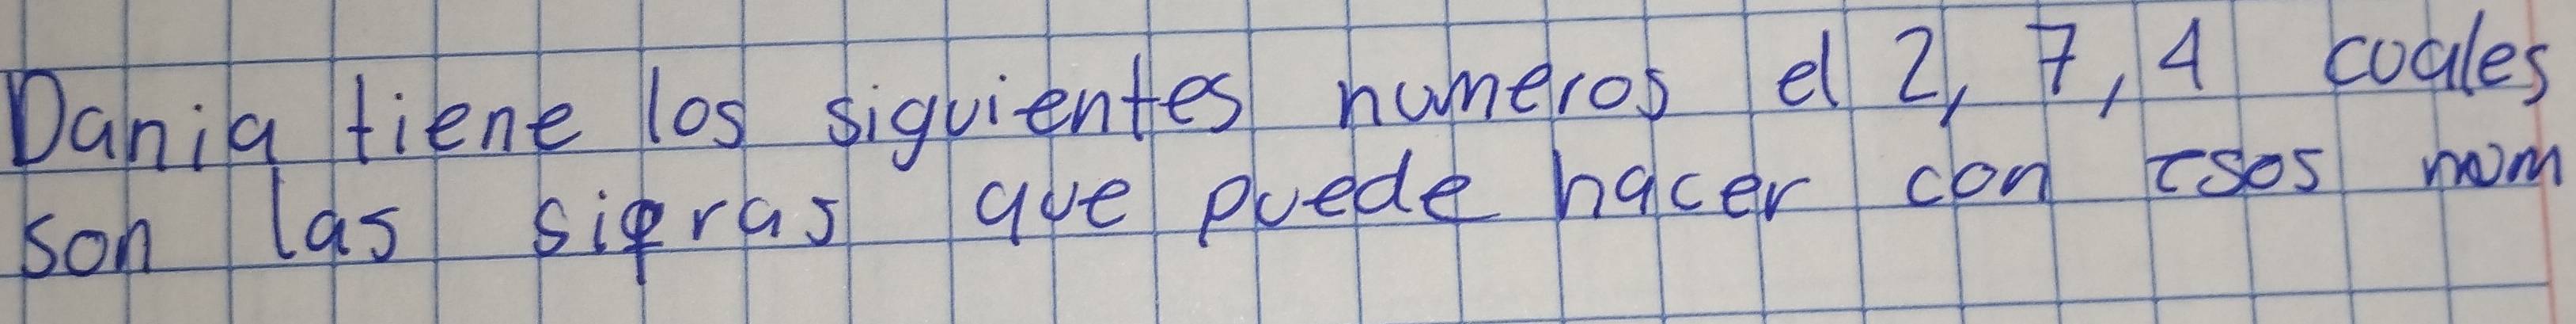 Dania tiene los siguientes numeros el 2, 7, 4 cuales
son las sifras que puede hacer con esos num